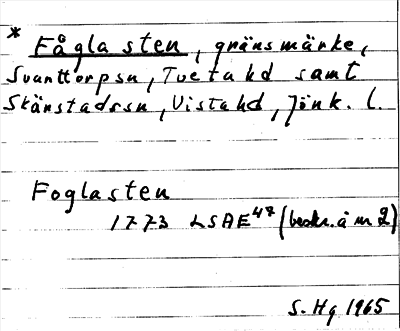 * Fågla sten, gränsmärke,
Svanttorpsn, Tveta hd samt
Skänstadssn, Vista hd, Jönk. l.
Foglasten
1773 LSAE 47 (beskr. å nr 2)
S. Hg 1965